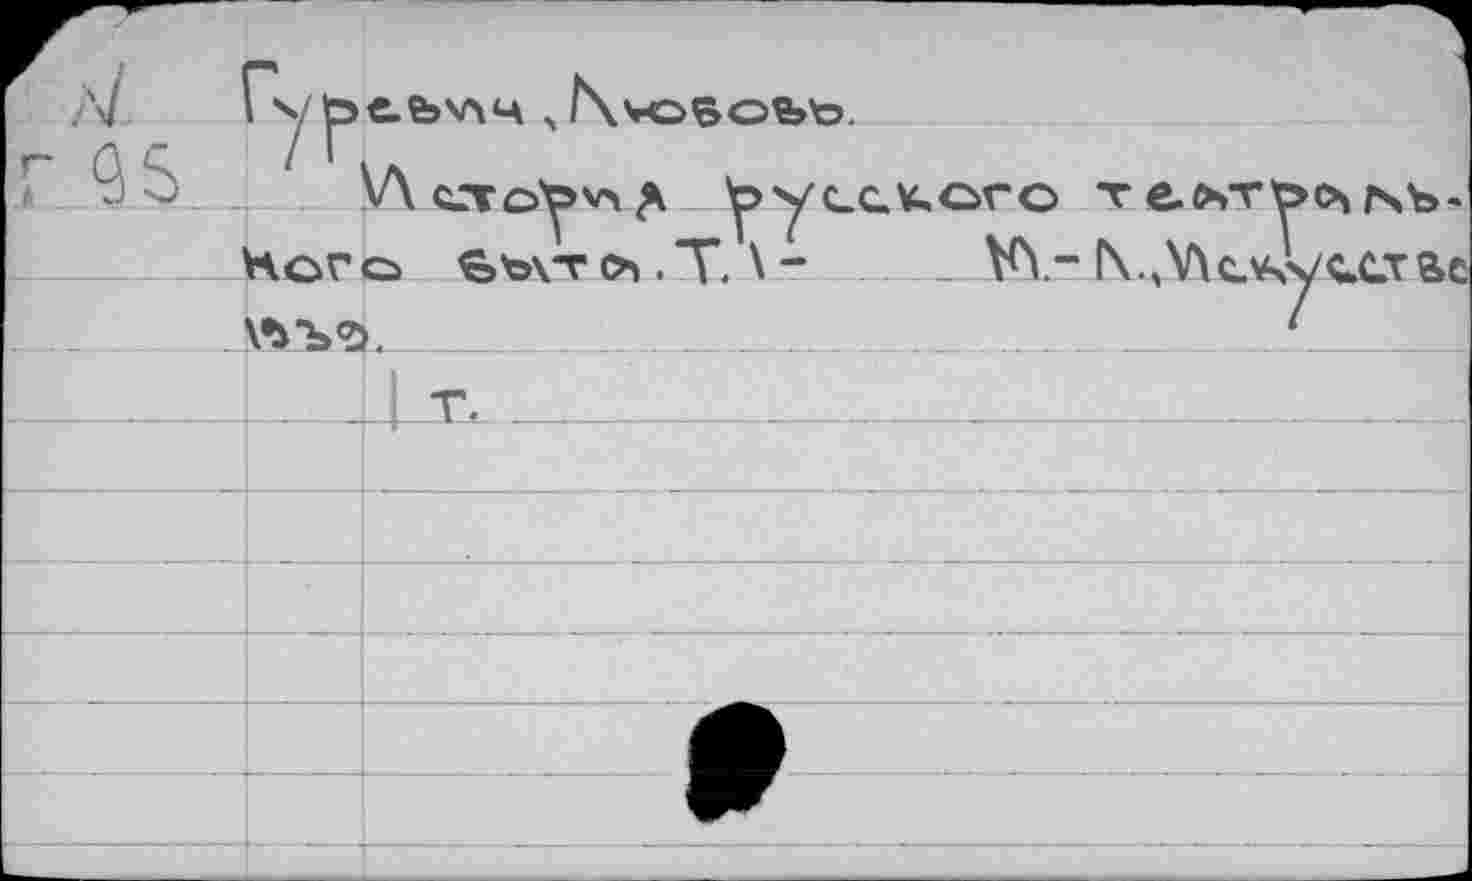 N Гуревич, Любовь.
Г 95 История русского театраль-
ного быта. Т. 1- М.-Л., Искусство
1939.
1 т.